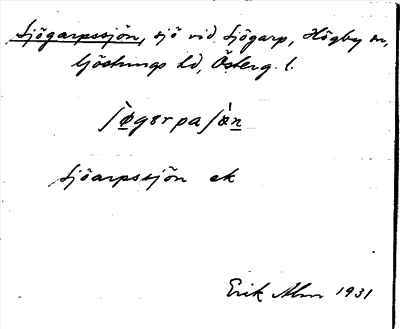 Sjögarpssjön, sjö vid Sjögarp, Högby sn,
Göstrings hd, Österg. l.
ʃø̀gɐrpaʃæ̀n
Sjöarpssjön ek
Erik Alm 1931